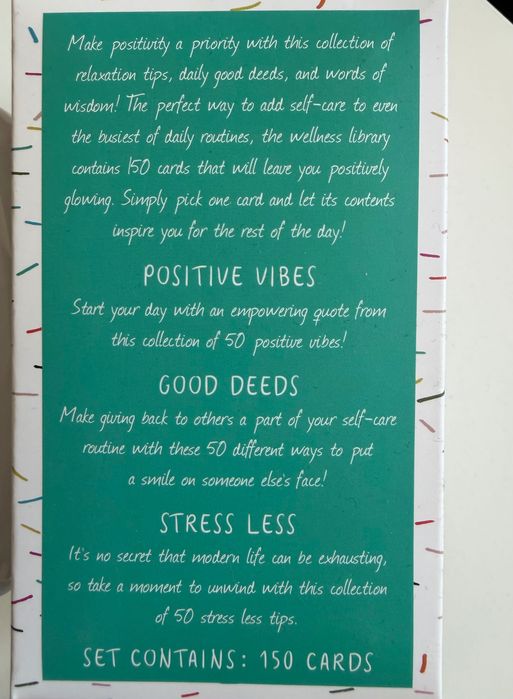 Make positivity a priority with this collection of
relaxation tips, daily good deeds, and words of
wisdom! The perfect way to add self-care to even
the busiest of daily routines, the wellness library
contains 150 cards that will leave you positively
glowing. Simply pick one card and let its contents
inspire you for the rest of the day!
POSITIVE VIBES
Start your day with an empowering quote from
this collection of 50 positive vibes!
GOOD DEEDS
Make giving back to others a part of your self-care
routine with these 50 different ways to put
a smile on someone else's face!
STRESS LESS
It's no secret that modern life can be exhausting,
so take a moment to unwind with this collection
of 50 stress less tips.
SET CONTAINS: 150 CARDS